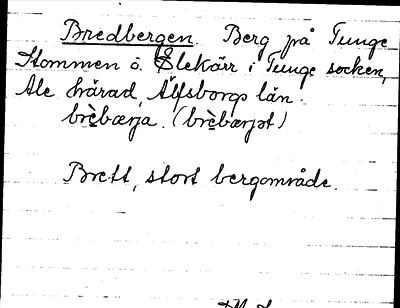 Bredbergen. Berg på Tunge
Stommen ö. Elekärr i Tunge socken,
Ale härad, Älfsborgs län.
brèbærja. (brèbærjət)
Brett, stort bergområde.